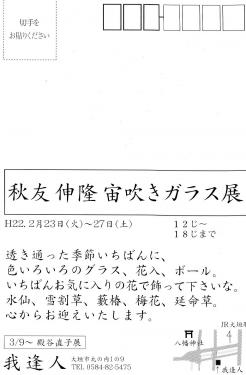 切手を
お貼りください
秋友 伸隆 宙吹きガラス展
H22. 2月23日(火)〜27日(土)
12じ〜
18じまで
透き通った季節いちばんに、
色いろいろのグラス、花入、ボール。
いちばんお気に入りの花で飾って下さいな。
水仙、雪割草、藪椿、梅花、延命草。
心からお迎えいたします。
JR大垣駅
八幡神社
4
3/9〜 殿谷直子展
我逢人
大垣市丸の内1の9
TEL 0584-82-5475
我逢人